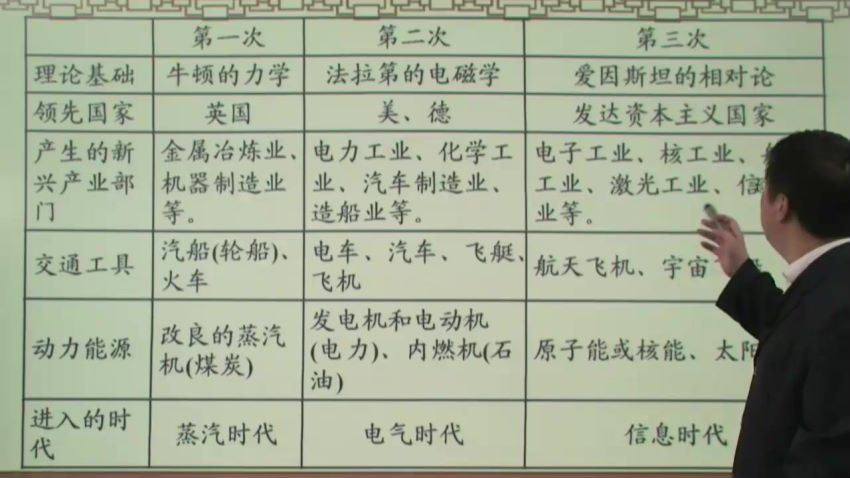 第一次 第二次 第三次
理论基础 牛顿的力学 法拉第的电磁学 爱因斯坦的相对论
领先国家 英国 美、德 发达资本主义国家
产生的新 金属冶炼业、 电力工业、化学工 电子工业、核工业、
兴产业部 机器制造业 业、汽车制造业、 工业、激光工业、信
门 等。 造船业等。 业等。
交通工具 汽船(轮船)、 电车、汽车、飞艇、 航天飞机、宇宙
火车 飞机
动力能源 改良的蒸汽 发电机和电动机 原子能或核能、太阳
机(煤炭) (电力)、内燃机(石
油)
进入的时 蒸汽时代 电气时代 信息时代
代